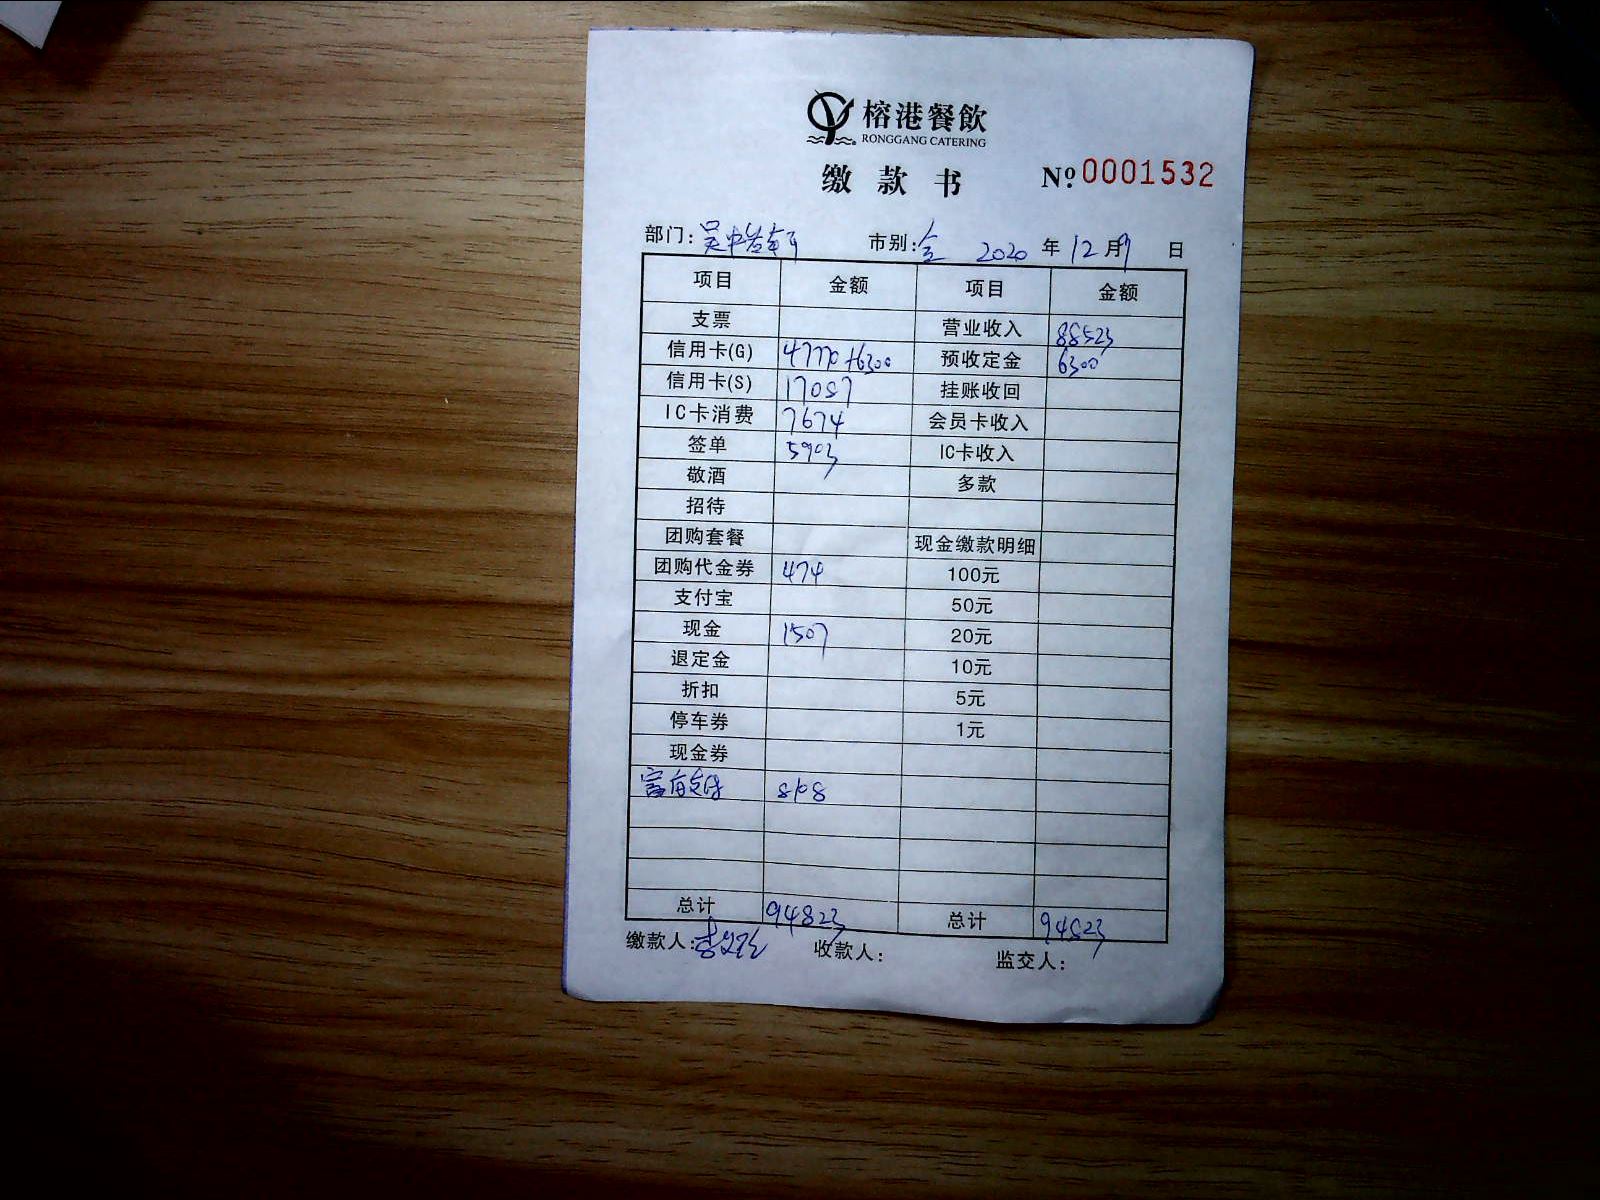 榕港餐飲
RONGGANG CATERING
缴款书 Nº 0001532
部门: 吴中 市别: 全 2020 年 12 月 9 日
项目 金额 项目 金额
支票 营业收入 88523
信用卡(G) 47770+6300 预收定金 6300
信用卡(S) 17087 挂账收回
IC卡消费 7674 会员卡收入
签单 5903 IC卡收入
敬酒 多款
招待
团购套餐 现金缴款明细
团购代金券 474 100元
支付宝 50元
现金 1507 20元
退定金 10元
折扣 5元
停车券 1元
现金券
富有支付 8108
总计 94823 总计 94823
缴款人: 收款人: 监交人: